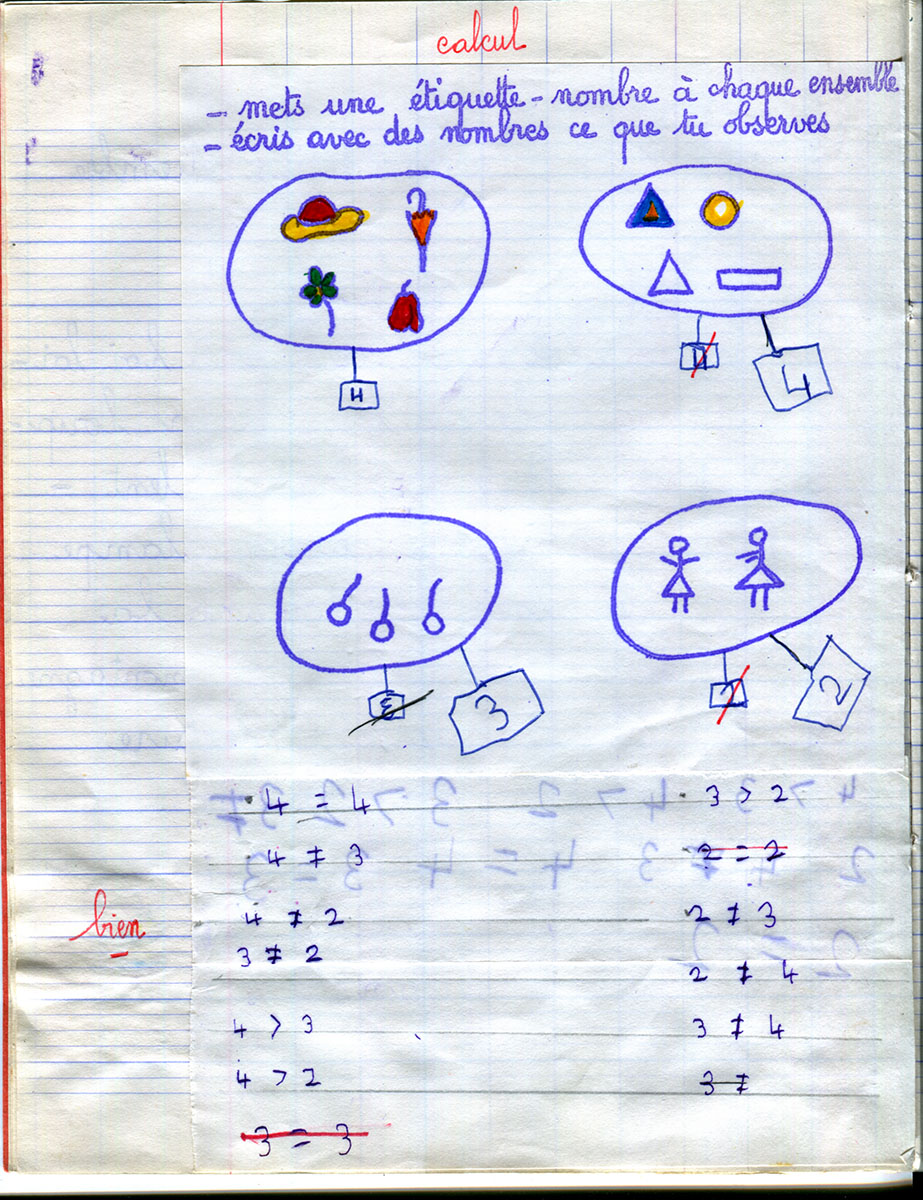 calcul
- mets une étiquette - nombre à chaque ensemble
- écris avec des nombres ce que tu observes
4
4
4
3
3
2
2
4 = 4
4 ≠ 3
4 ≠ 2
3 ≠ 2
4 > 3
4 > 2
3 = 3
3 > 2
2 = 2
2 ≠ 3
2 ≠ 4
3 ≠ 4
3 ≠
bien